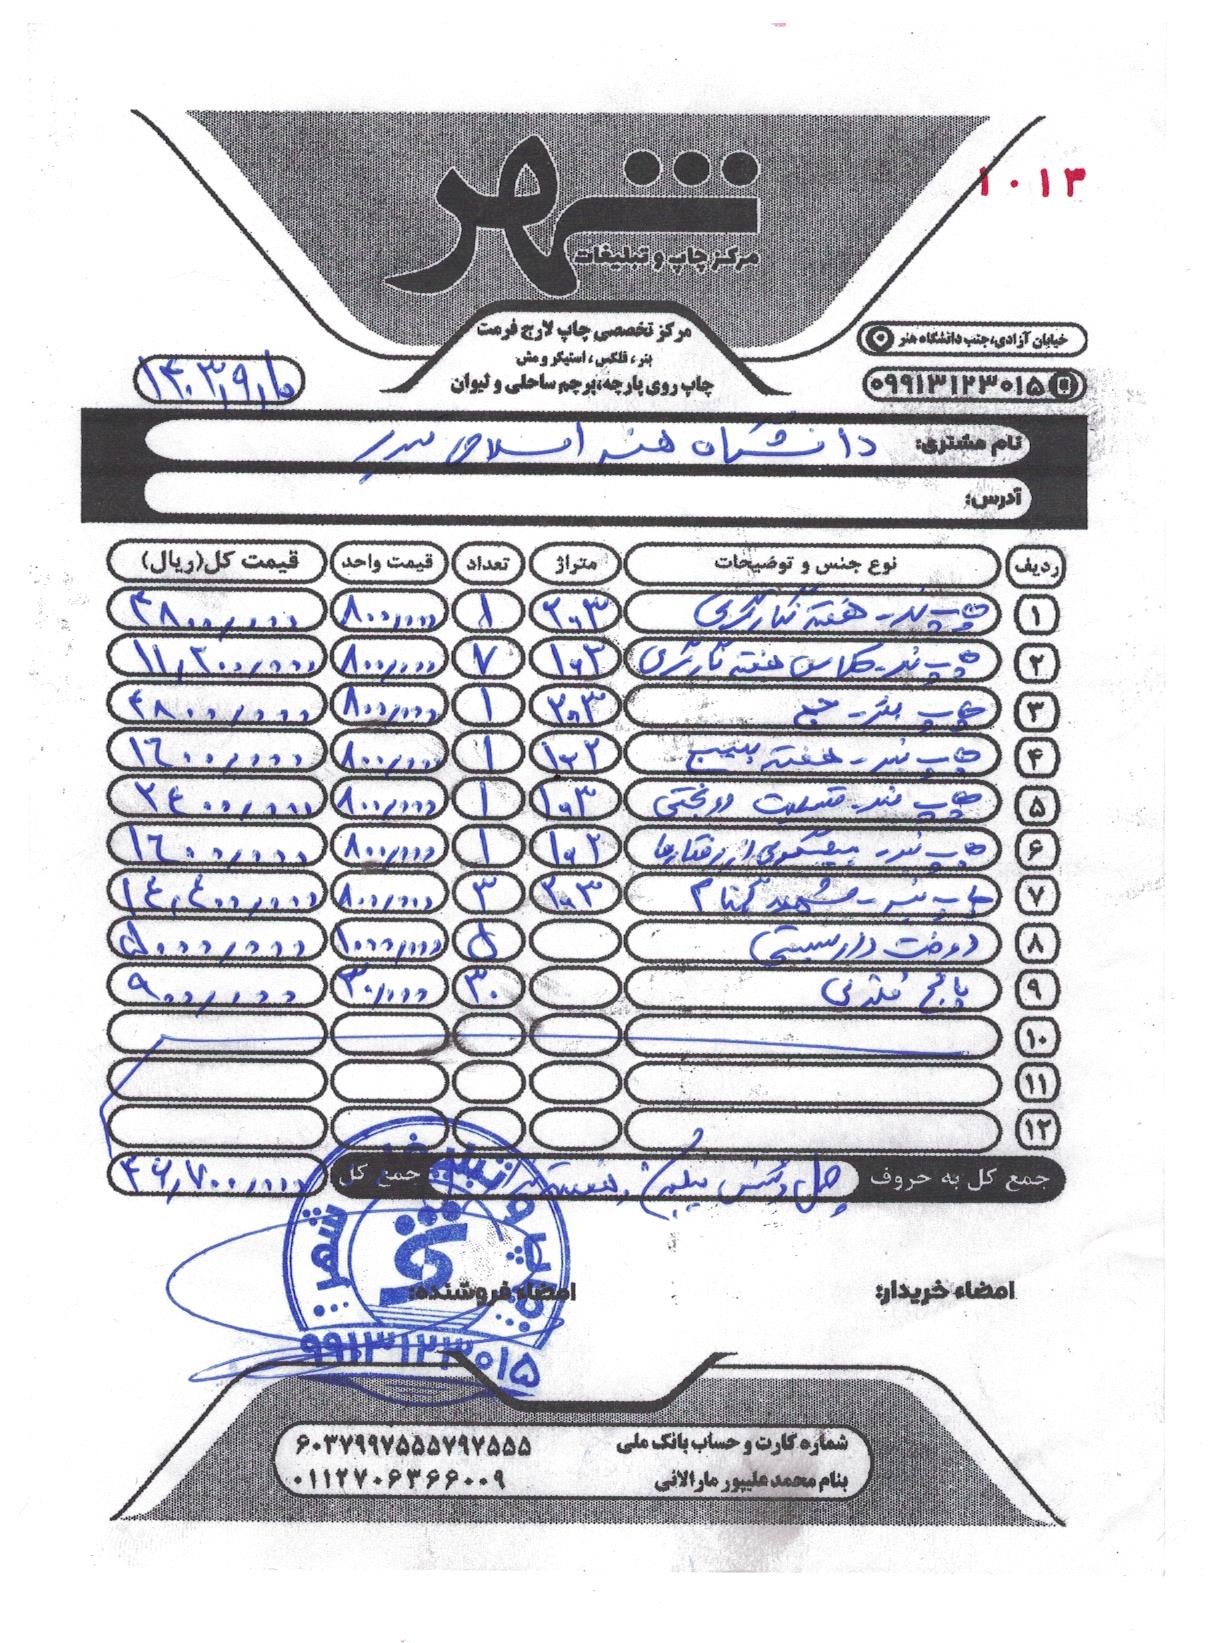 شهر
مرکز چاپ و تبلیغات
۱۰۱۳
مرکز تخصصی چاپ لارج فرمت
بنر، فلکس، استیکر و مش
چاپ روی پارچه، پرچم ساحلی و لیوان
خیابان آزادی، جنب دانشگاه هنر
۰۹۹۱۳۱۲۳۰۱۵
نام مشتری: دانشگاه هنر اسلامی تبریز
آدرس:
ردیف نوع جنس و توضیحات متراژ تعداد قیمت واحد قیمت کل(ریال)
۱ چاپ بنر - هفته ۲×۳ ۱ ۸۰۰/۰۰۰ ۴۸۰۰/۰۰۰
۲ چاپ بنر - هفته ۱×۲ ۷ ۸۰۰/۰۰۰ ۱۱,۲۰۰/۰۰۰
۳ چاپ بنر - ۲×۳ ۱ ۸۰۰/۰۰۰ ۴۸۰۰/۰۰۰
۴ چاپ بنر - هفته بسیج ۱×۲ ۱ ۸۰۰/۰۰۰ ۱۶۰۰/۰۰۰
۵ چاپ بنر - ۱×۳ ۱ ۸۰۰/۰۰۰ ۲۴۰۰/۰۰۰
۶ چاپ بنر - پیشگیری از رفتارها ۱×۲ ۱ ۸۰۰/۰۰۰ ۱۶۰۰/۰۰۰
۷ چاپ بنر - شهید گمنام ۲×۳ ۳ ۸۰۰/۰۰۰ ۱۴,۴۰۰/۰۰۰
۸ دوخت ۵ ۱۰۰۰/۰۰۰ ۵۰۰۰/۰۰۰
۹ پانچ فلزی ۳۰ ۳۰/۰۰۰ ۹۰۰/۰۰۰
۱۰
۱۱
۱۲
جمع کل به حروف چهل و شش میلیون و هفتصد جمع کل ۴۶,۷۰۰/۰۰۰
چاپ و تبلیغات شهر
۰۹۹۱۳۱۲۳۰۱۵
امضاء خریدار: امضاء فروشنده:
شماره کارت و حساب بانک ملی ۶۰۳۷۹۹۷۵۵۵۷۹۷۵۵۵
بنام محمد علیپور مارالانی ۰۱۱۲۷۰۶۳۶۶۰۰۹